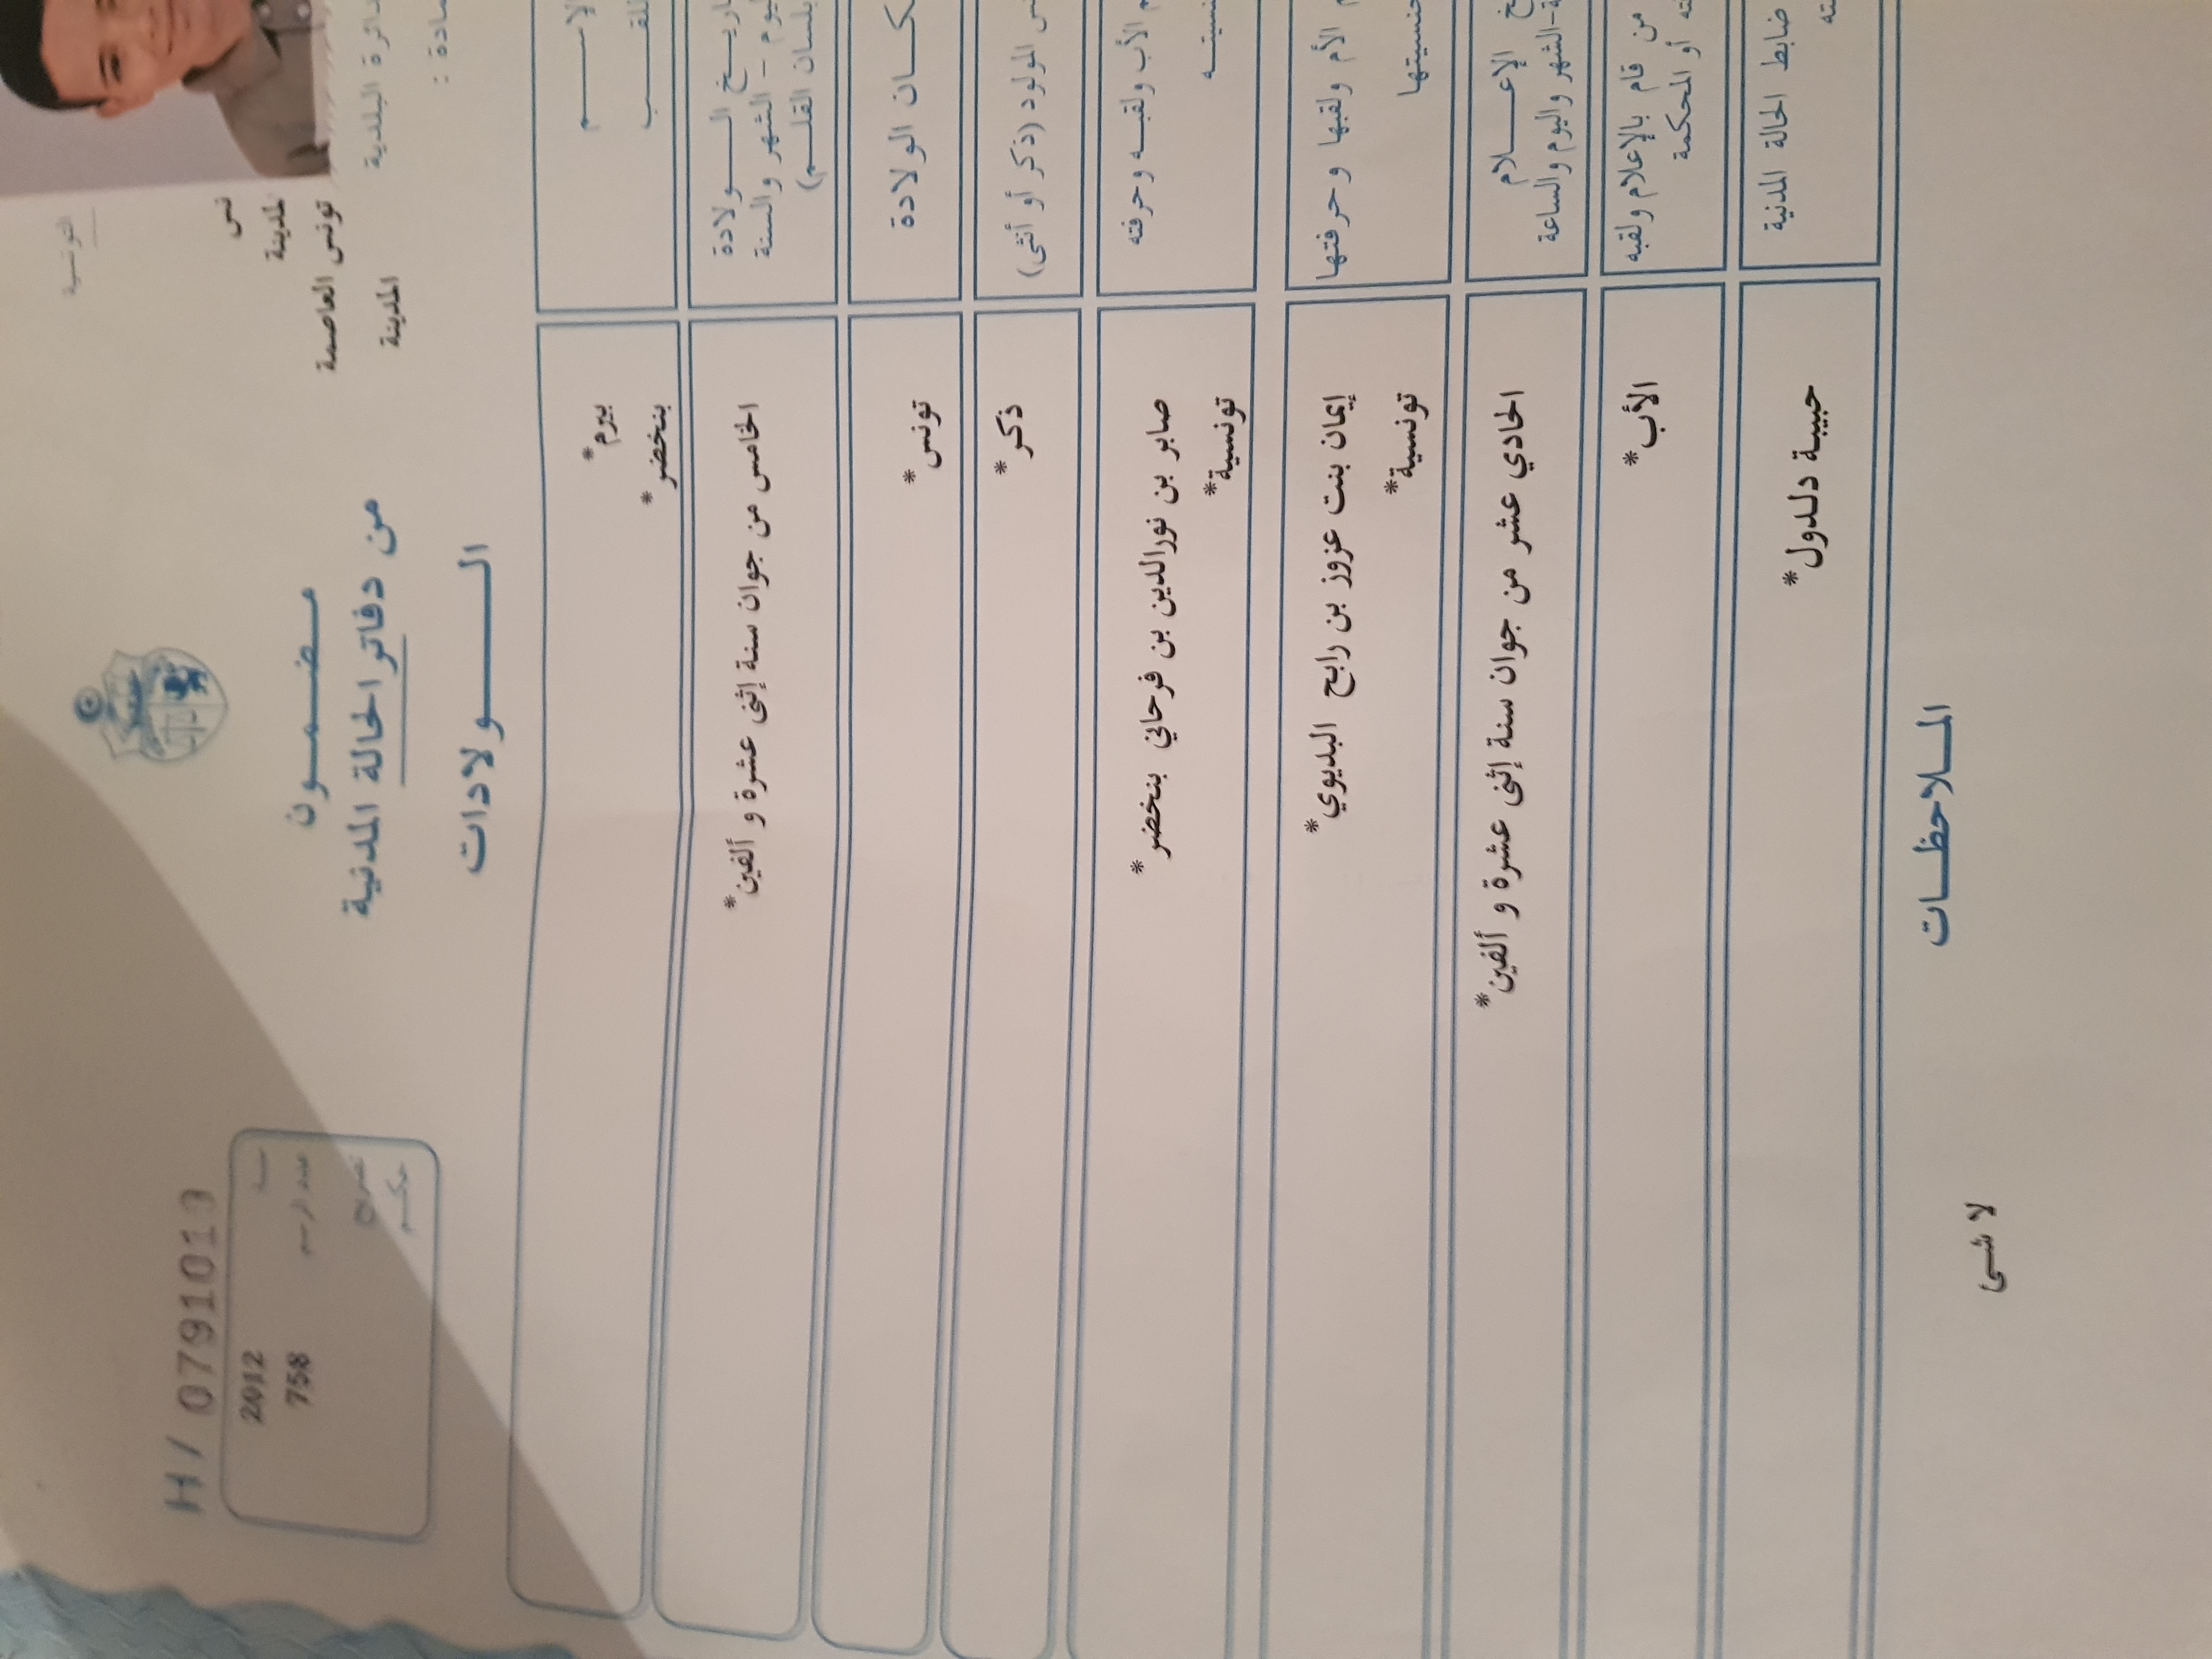 التونسية
H/ 0791013
نس
المدينة
تونس العاصمة
المدينة
دائرة البلدية
2012
عدد الرسم 758
تصريح
حكم
مضمون
من دفاتر الحالة المدنية
الولادات
الاسم بيرم*
اللقب بنخضر*
الولادة الخامس من جوان سنة إثنى عشرة و ألفين*
اليوم - الشهر والسنة
بلسان القلم)
مكان الولادة تونس*
المولود (ذكر أو أنثى) ذكر*
الأب ولقبه وحرفته صابر بن نورالدين بن فرحاني بنخضر*
تونسية*
الأم ولقبها وحرفتها إيمان بنت عزوز بن رابح البديوي*
جنسيتها تونسية*
الإعلام الحادي عشر من جوان سنة إثنى عشرة و ألفين*
الشهر واليوم والساعة
من قام بالإعلام ولقبه الأب*
أو المحكمة
ضابط الحالة المدنية حبيبة دلدول*
الملاحظات
لا شى